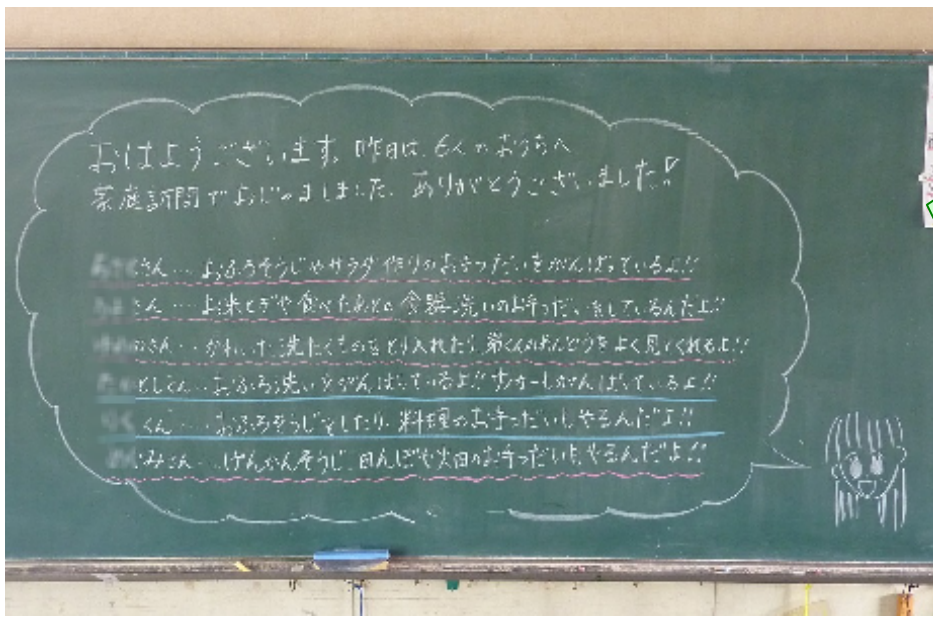 おはようございます。昨日は、6人のおうちへ
家庭訪問でおじゃましました。ありがとうございました!
さん…おふろそうじやサラダ作りのお手つだいをがんばっているよ!!
さん…お米とぎや食べたあとの食器洗いのお手つだいをしているんだよ!!
さん…かわいた洗たくものをとり入れたり、弟くんのめんどうをよく見てくれるよ!!
としくん…おふろ洗いをがんばっているよ!! サッカーもがんばっているよ!!
くん…おふろそうじをしたり、料理のお手つだいもやるんだよ!!
みさん…げんかんそうじ、田んぼや火田のお手つだいも、やるんだよ!!